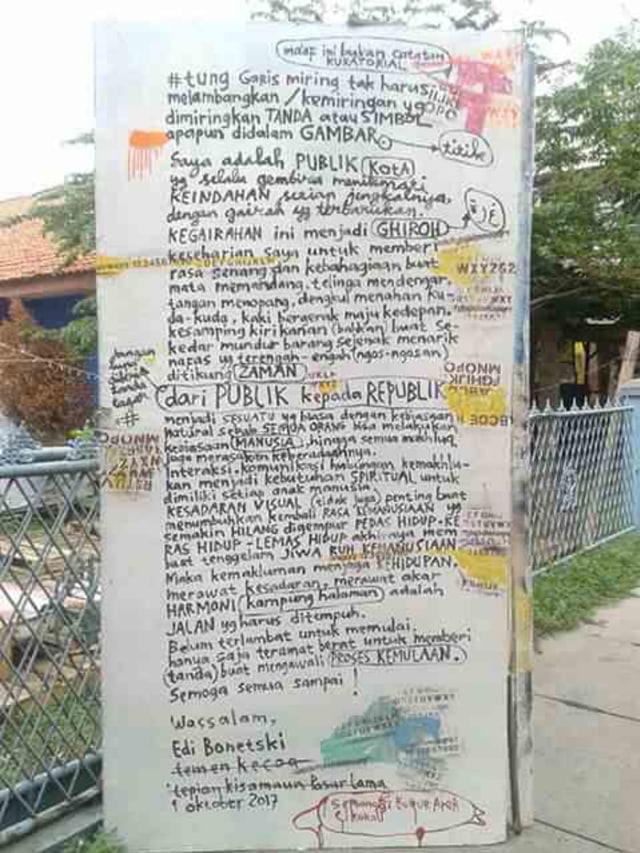 maaf ini bukan catatan
KURATORIAL
#tung GARIS miring tak harus
melambangkan /kemiringan yg
dimiringkan TANDA atau SIMBOL
apapun didalam GAMBAR
titik
Saya adalah PUBLIK (KOTA)
yg selalu gembira menikmati
KEINDAHAN
dengan gairah yg terbarukan.
KEGAIRAHAN ini menjadi GHIROH
keseharian saya untuk memberi
rasa senang dan kebahagiaan buat
mata memandang, telinga mendengar,
tangan menopang, dengkul menahan ku-
da-kuda, kaki bergerak maju kedepan,
kesamping kiri kanan (bahkan) buat se-
kedar mundur barang sejenak menarik
napas yg terengah-engah (ngos-ngosan)
ditikung ZAMAN
dari PUBLIK kepada REPUBLIK
menjadi SESUATU yg biasa dengan kebiasaan
natural sebab SEMUA ORANG bisa melakukan
kebiasaan (MANUSIA), hingga semua makhluq
juga merasakan keberadaannya.
Interaksi, komunikasi hubungan kemakhlu-
kan menjadi kebutuhan SPIRITUAL untuk
dimiliki setiap anak manusia.
KESADARAN VISUAL (tidak juga) penting buat
menumbuhkan kembali RASA KEMANUSIAAN yg
semakin HILANG digempur PEDAS HIDUP-KE
RAS HIDUP-LEMAS HIDUP akhirnya mem
buat tenggelam JIWA RUH KEMANUSIAAN
Maka kemakluman menjaga KEHIDUPAN.
merawat kesadaran, merawat akar
HARMONI (kampung halaman) adalah
JALAN yg harus ditempuh.
Belum terlambat untuk memulai.
hanya saja teramat berat untuk memberi
(tanda) buat mengawali PROSES KEMULAAN.
Semoga semua sampai !
Wassalam,
Edi Bonetski
temen kecoa
tepian kisamaun Pasar Lama
1 oktober 2017